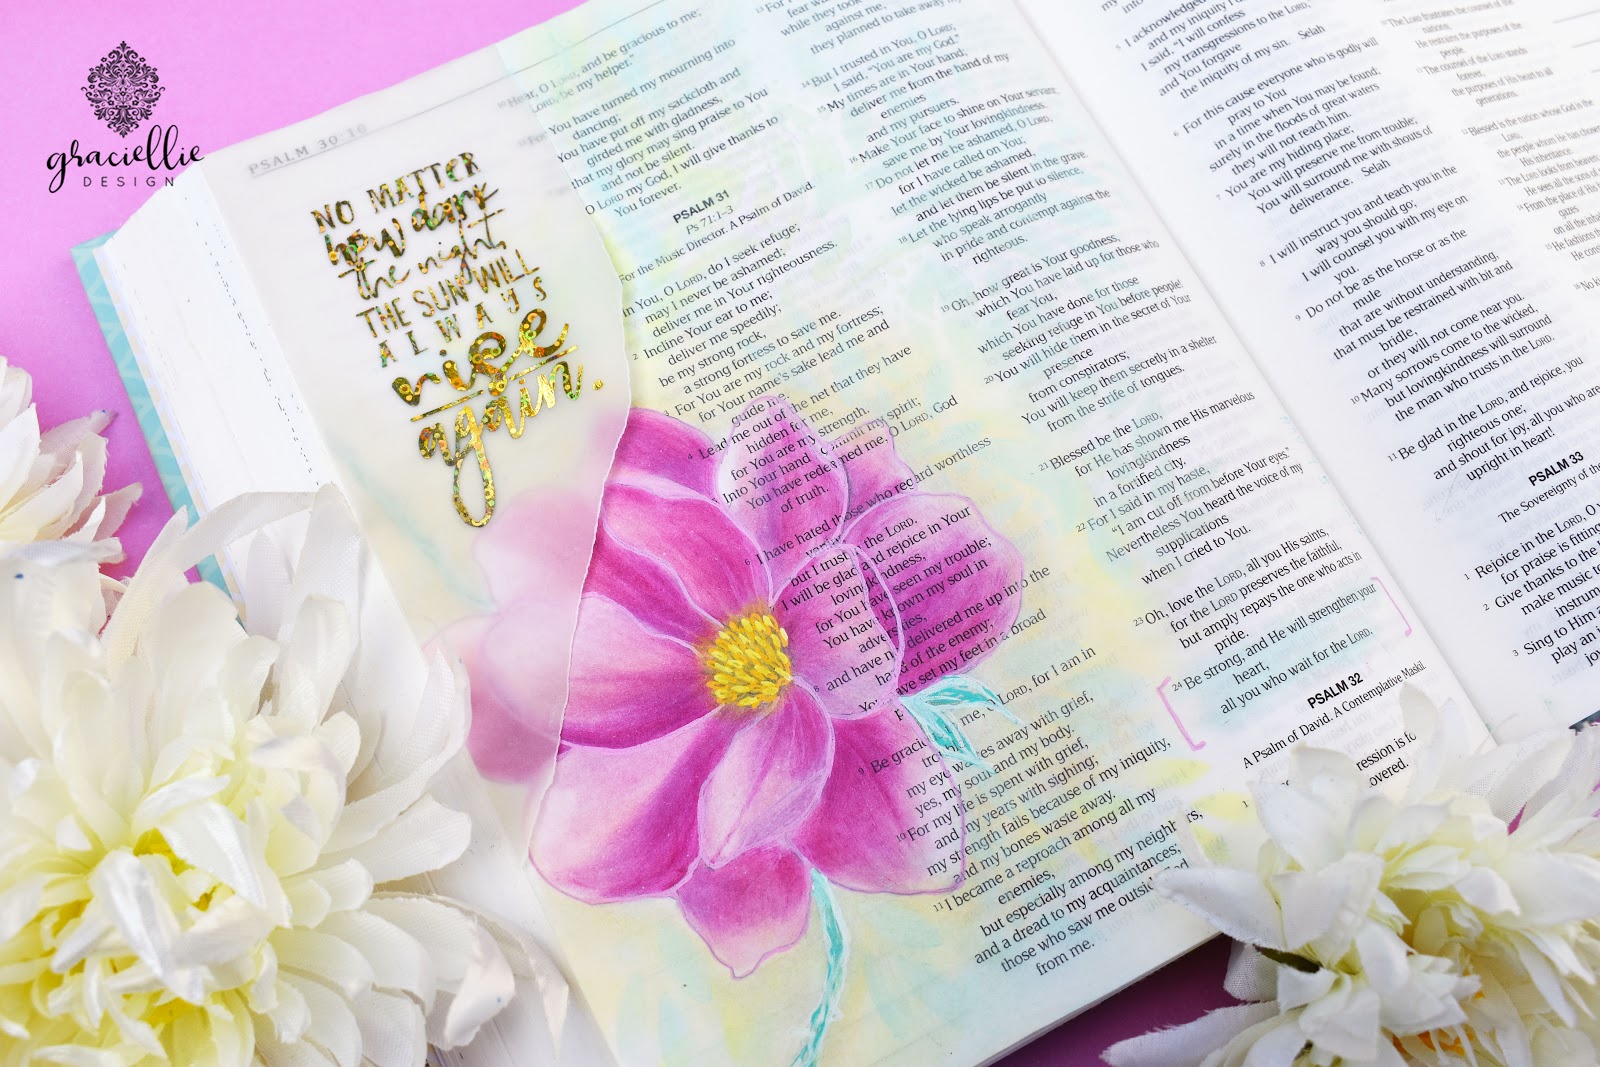 graciellie
DESIGN
PSALM 30:10
NO MATTER
how dark
the night
THE SUN WILL
ALWAYS
rise
again.
10 Hear, O LORD, and be gracious to me;
LORD, be my helper."
You have turned my mourning into
dancing;
You have put off my sackcloth and
girded me with gladness,
that my glory may sing praise to You
and not be silent.
O LORD my God, I will give thanks to
You forever.
PSALM 31
Ps 71:1–3
For the Music Director. A Psalm of David.
In You, O LORD, do I seek refuge;
may I never be ashamed;
deliver me in Your righteousness.
2 Incline Your ear to me;
deliver me speedily;
be my strong rock,
a strong fortress to save me.
3 For You are my rock and my fortress;
for Your name's sake lead me and
guide me.
4 Lead me out of the net that they have
hidden for me,
for You are my strength.
Into Your hand I commit my spirit;
You have redeemed me, O LORD, God
of truth.
6 I have hated those who regard worthless
but I trust in the LORD.
I will be glad and rejoice in Your
lovingkindness,
for You have seen my trouble;
You have known my soul in
adversities,
8 and have not delivered me up into the
hand of the enemy;
You have set my feet in a broad
9 Be gracious to me, O LORD, for I am in
trouble;
my eye wastes away with grief,
yes, my soul and my body.
10 For my life is spent with grief,
and my years with sighing;
my strength fails because of my iniquity,
and my bones waste away.
11 I became a reproach among all my
enemies,
but especially among my neighbors,
and a dread to my acquaintances;
those who saw me outside fled
from me.
fear was
while they took
against me,
they planned to take away my
14 But I trusted in You, O LORD;
I said, "You are my God."
15 My times are in Your hand;
deliver me from the hand of my
enemies
and my pursuers.
16 Make Your face to shine on Your servant;
save me by Your lovingkindness.
17 Do not let me be ashamed, O LORD,
for I have called on You;
let the wicked be ashamed,
and let them be silent in the grave.
18 Let the lying lips be put to silence,
who speak arrogantly
in pride and contempt against the
righteous.
19 Oh, how great is Your goodness,
which You have laid up for those who
fear You,
which You have done for those
seeking refuge in You before people!
20 You will hide them in the secret of Your
presence
from conspirators;
You will keep them secretly in a shelter
from the strife of tongues.
21 Blessed be the LORD,
for He has shown me His marvelous
lovingkindness
in a fortified city.
22 For I said in my haste,
"I am cut off from before Your eyes."
Nevertheless You heard the voice of my
supplications
when I cried to You.
23 Oh, love the LORD, all you His saints,
for the LORD preserves the faithful,
but amply repays the one who acts in
pride.
24 Be strong, and He will strengthen your
heart,
all you who wait for the LORD.
PSALM 32
A Psalm of David. A Contemplative Maskil.
5 I acknowledged
and my iniquity I d
I said, "I will confess
my transgressions to the LORD,"
and You forgave
the iniquity of my sin. Selah
6 For this cause everyone who is godly will
pray to You
in a time when You may be found;
surely in the floods of great waters
they will not reach him.
7 You are my hiding place;
You will preserve me from trouble;
You will surround me with shouts of
deliverance. Selah
8 I will instruct you and teach you in the
way you should go;
I will counsel you with my eye on
you.
9 Do not be as the horse or as the
mule
that are without understanding,
that must be restrained with bit and
bridle,
or they will not come near you.
10 Many sorrows come to the wicked,
but lovingkindness will surround
the man who trusts in the LORD.
11 Be glad in the LORD, and rejoice, you
righteous one;
and shout for joy, all you who are
upright in heart!
PSALM 33
The Sovereignty of the
1 Rejoice in the LORD, O y
for praise is fitting
2 Give thanks to the
make music to
instrum
3 Sing to Him a
play an i
10 The LORD frustrates the counsel of the
nations;
He restrains the purposes of the
people.
11 The counsel of the LORD stands
forever,
the purposes of His heart to all
generations.
12 Blessed is the nation whose God is the
LORD,
the people whom He has chosen
His inheritance.
13 The LORD looks from heaven;
He sees all the sons of
14 From the place of His
gazes
on all the
15 He fashions